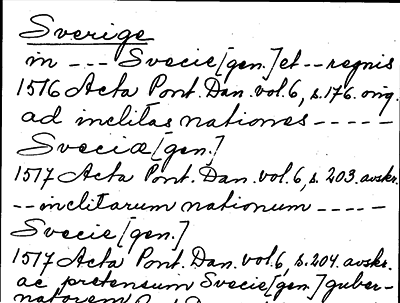 Sverige
in --- Svecie [gen.] et -- regnis
1516 Acta Pont. Dan. vol. 6, s. 176. orig.
ad inclitas nationes -----
Sveciæ [gen.]
1517 Acta Pont. Dan. vol. 6, s. 203. avskr.
-- inclitarum nationum ----
Svecie [gen.]
1517 Acta Pont. Dan. vol. 6, s. 204. avskr.
ac pretensum Svecie [gen.] guber-
natorem